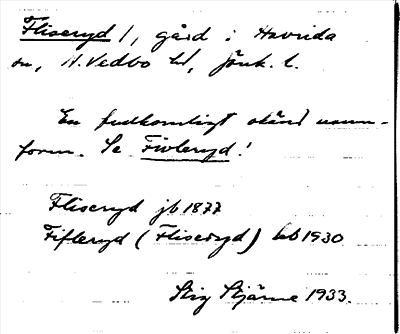 Fliseryd /, gård i Havrida
sn, N. Vedbo hd, Jönk. l.
En fullkomligt okänd namn-
form. Se Fivleryd!
Fliseryd jb 1877
Fifleryd (Fliseryd) kb 1930
Stig Stjärne 1933.